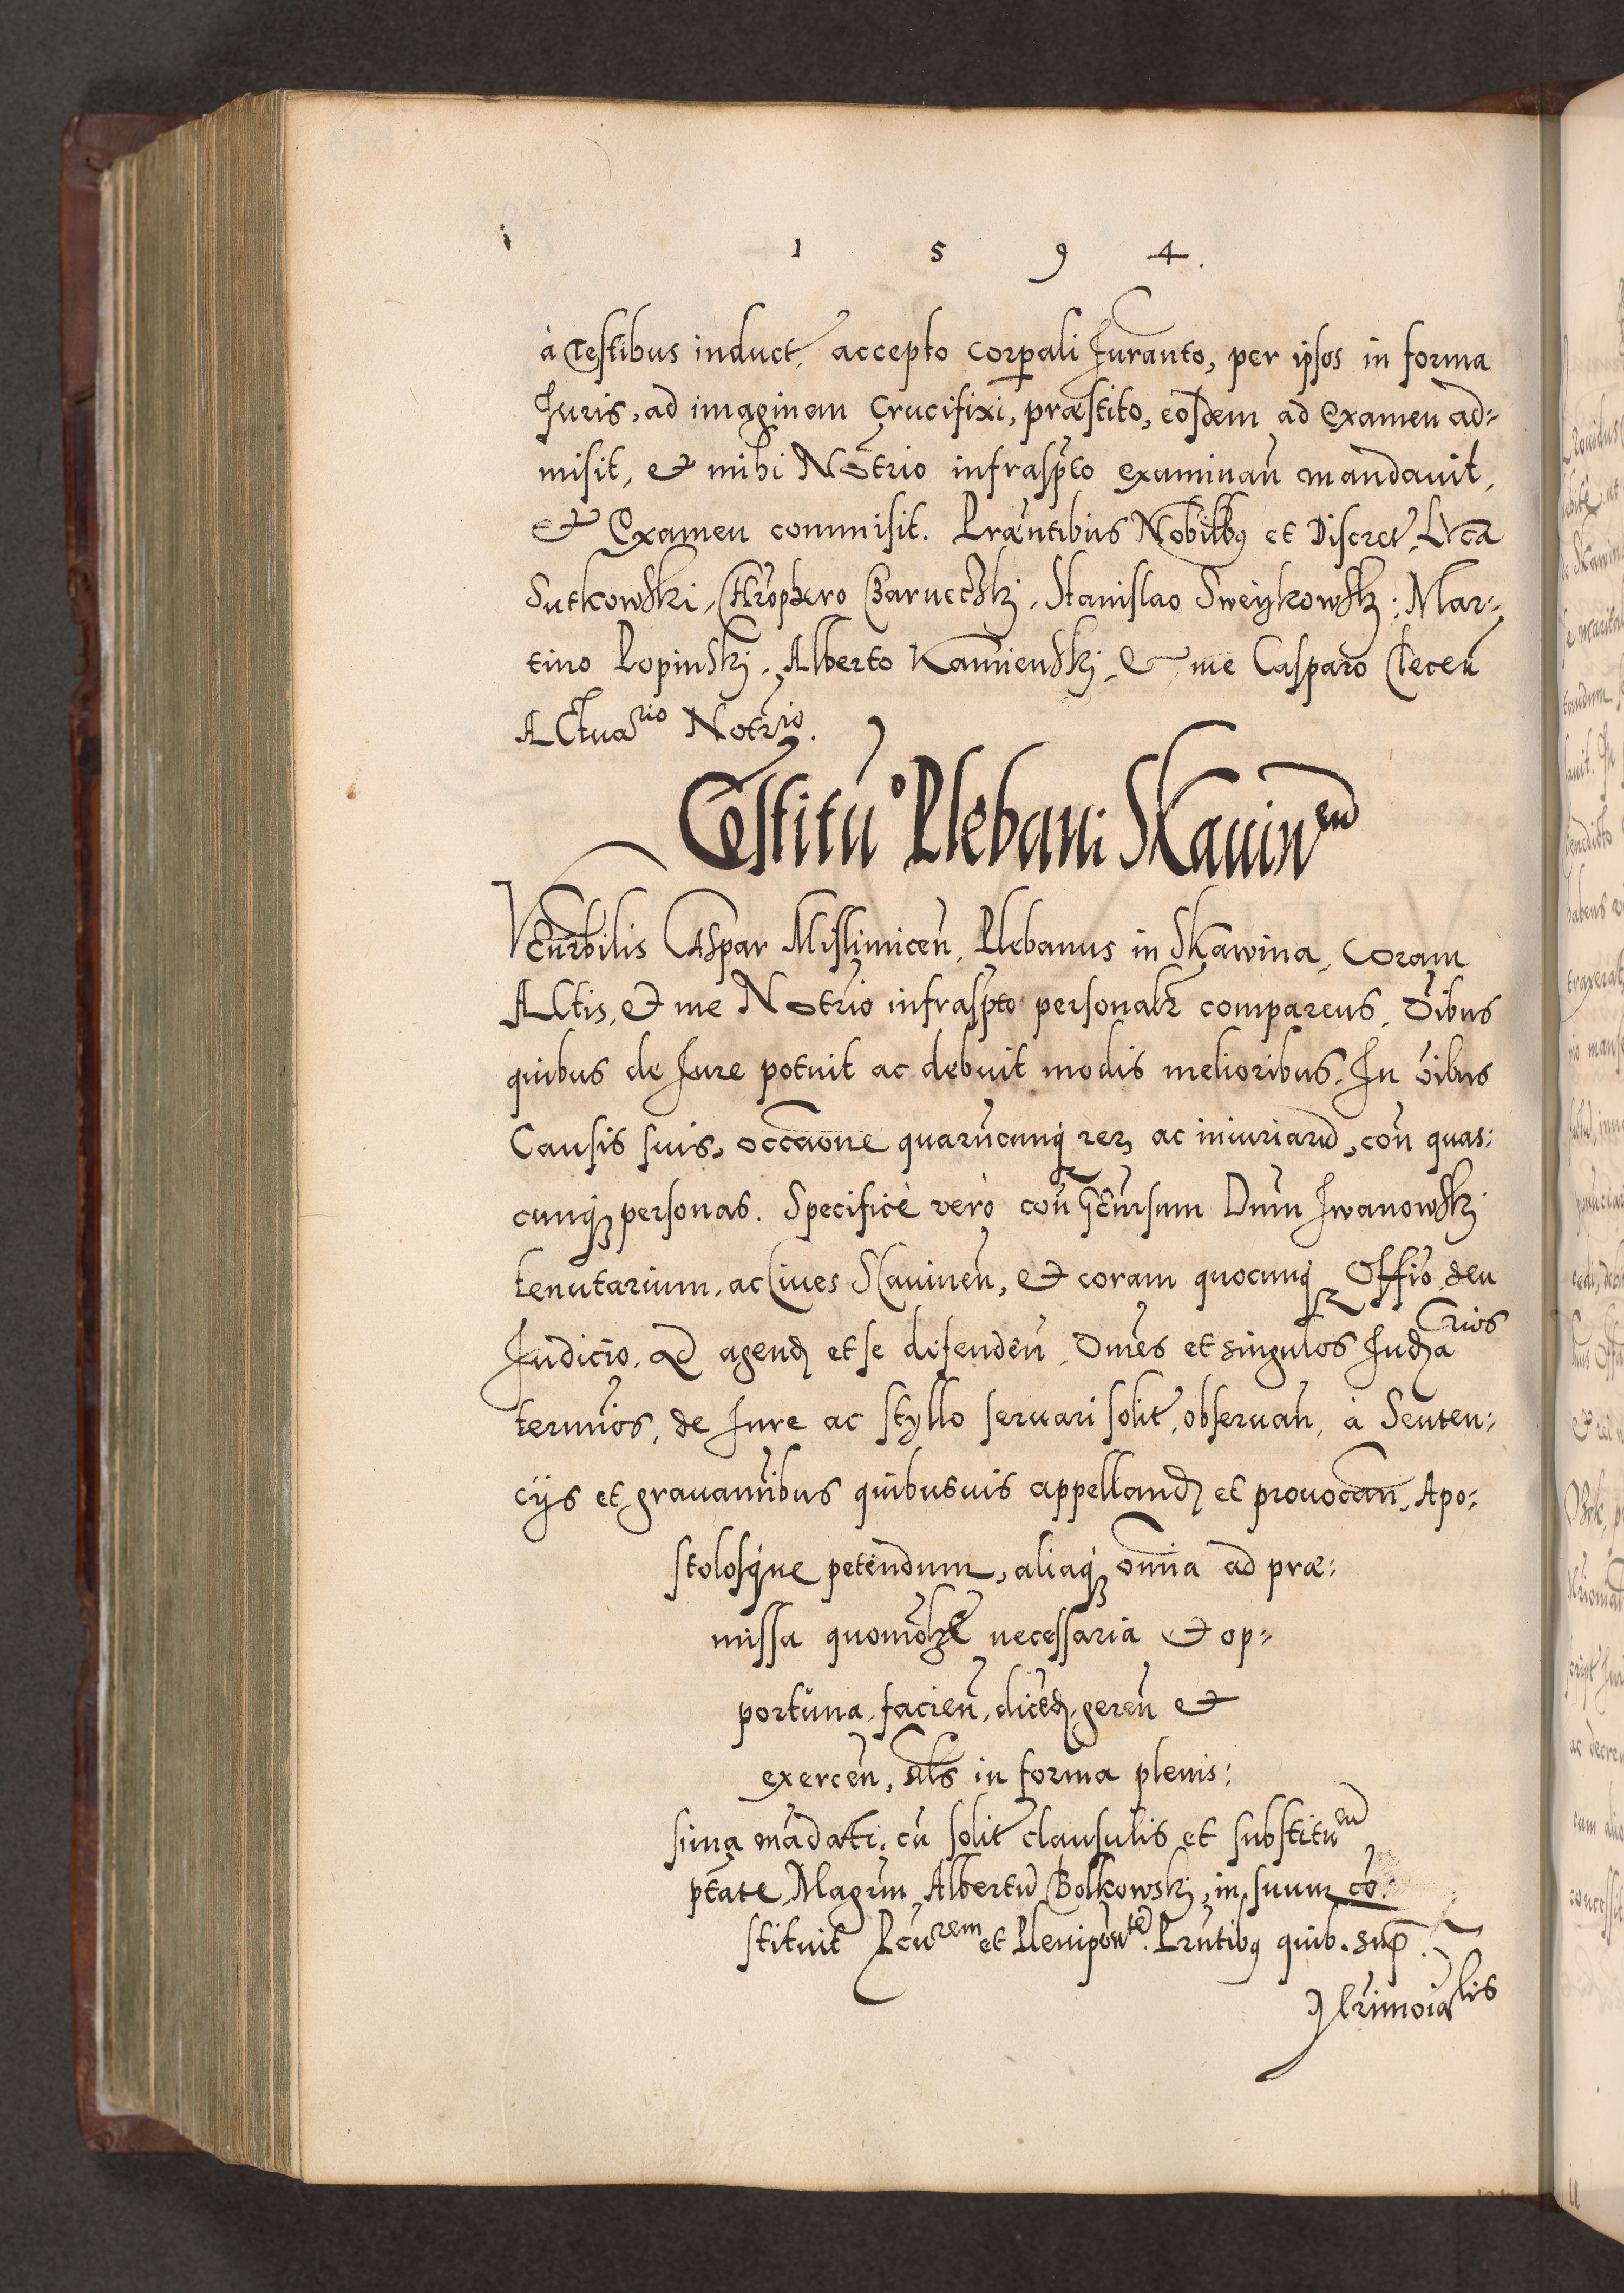 1 5 9 4.
à Testibus induct. accepto corpali Iuranto, per ipsos in forma
Iuris, ad imaginem Crucifixi, præstito, eosdem ad Examen ad=
misit, et mihi Notrio infraspto examinan mandauit,
et Examen commisit. Præntibus Nobilibus et Discret. Luca
Sutkowski, Chrophero Baruecski, Stanislao Sweijkowski: Mar=
tino Lopinski, Alberto Kamienski, et me Casparo Tecen
Actuario Notrio.
Cstituo Plebani Skauinen
Venrbilis Caspar Mislimicen, Plebanus in Skawina, coram
Actis, et me Notrio infraspto personalr comparens, Oibus
quibus de Iure potuit ac debuit modis melioribus, In oibus
Causis suis, occaone quarucunq rer ac iniuriaru, con quas:
cunq personas. Specificè verò con Genrsum Dnum Iwanowski
tenutarium, ac Ciues Scauinen, et coram quocunq Offio, seu
Iudicio, Ad agend et se difenden, Omes et singulos Iudicrios
terminos, de Iure ac styllo seruari solit, obseruan, à Senten:
cijs et grauaminibus quibusuis appelland et prouocan, Apo:
stolosque petendum, aliaq omnia ad præ:
missa quomolt necessaria et op=
portuna, facien, dicend, geren et
exercen, als in forma plenis:
sima mandati, cu solit clausulis et substituen
ptate, Magrum Albertu Bolkowski, in suum co:
stituit Pcurem et Pleniponte. Prntibus quib. sup.